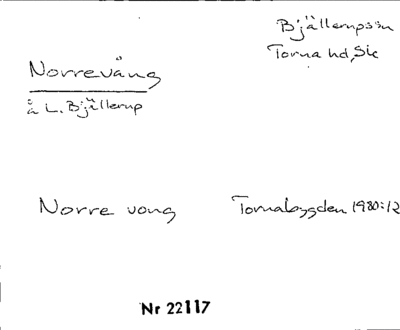 Bjällerupssn
Torna hd, Sk
Norrevång
å L. Bjällerup
Norre vong Tornabygden 1980:12
Nr 22117